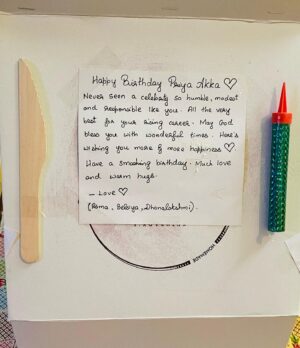 Happy Birthday Priya Akka ♡
Never seen a celebrity so humble, modest
and responsible like you. All the very
best for your rising career. May God
bless you with wonderful times. Here's
wishing you more & more happiness ♡
Have a smashing birthday. Much love
and warm hugs.
- Love ♡
(Roma, Belsiya, Dhanalakshmi).
HOMEMADE